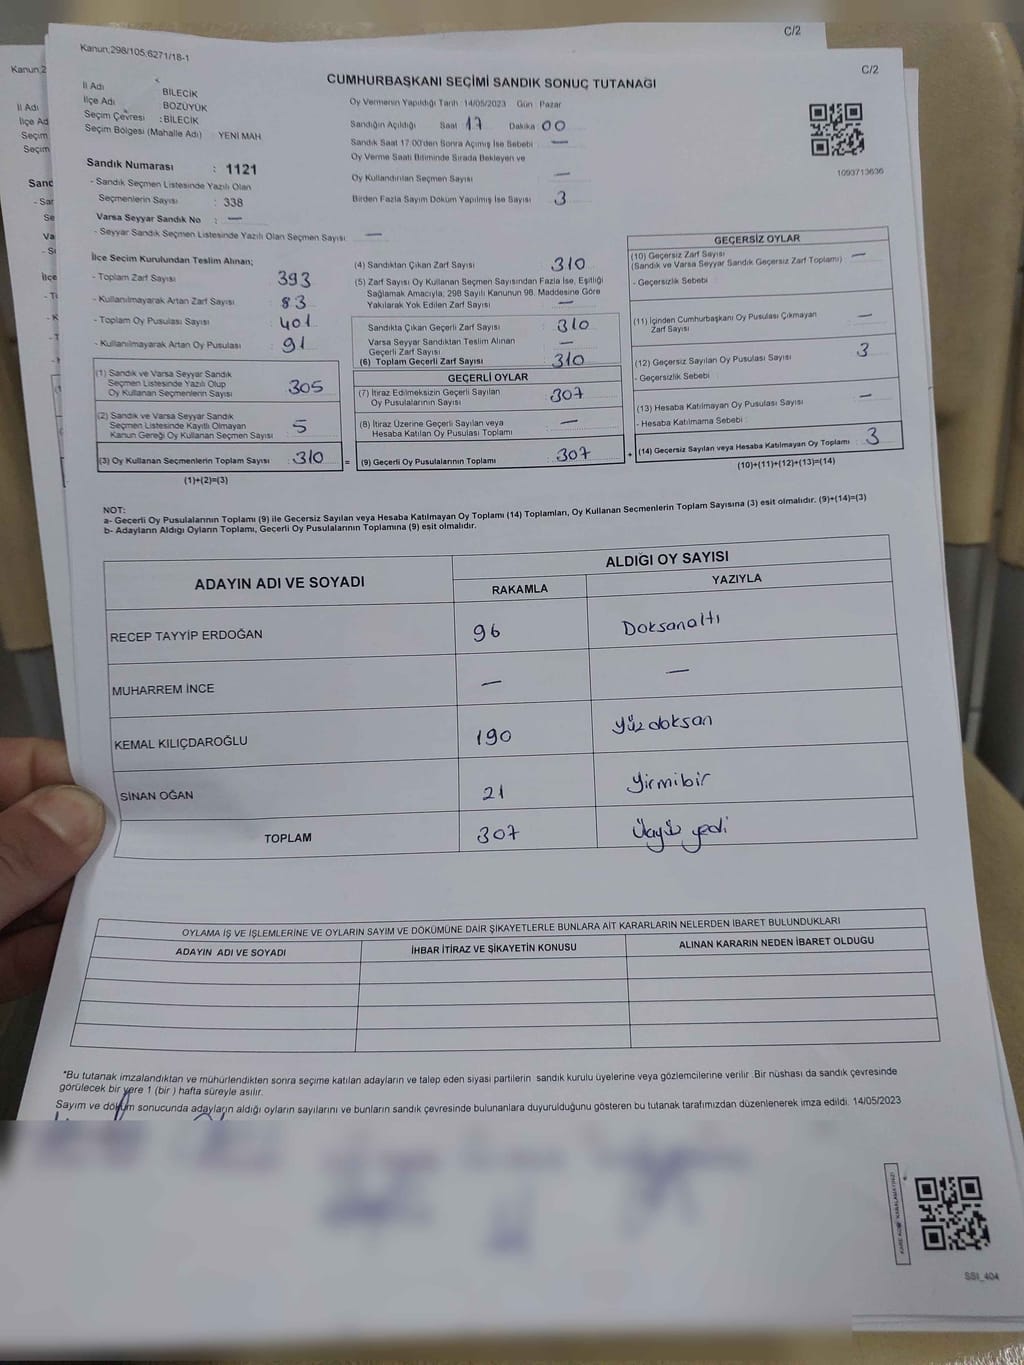 C/2
Kanun,298/105,6271/18-1
C/2
CUMHURBAŞKANI SEÇİMİ SANDIK SONUÇ TUTANAĞI
İl Adı BİLECİK
İlçe Adı BOZÜYÜK
Seçim Çevresi : BİLECİK
Seçim Bölgesi (Mahalle Adı) : YENİ MAH
Oy Vermenin Yapıldığı Tarih : 14/05/2023 Gün Pazar
Sandığın Açıldığı Saat 17 Dakika 00
Sandık Saat 17:00'den Sonra Açımış İse Sebebi : —
Oy Verme Saati Bitiminde Sırada Bekleyen ve
Oy Kullandırılan Seçmen Sayısı —
Birden Fazla Sayım Döküm Yapılmış İse Sayısı 3
1093713636
Sandık Numarası : 1121
- Sandık Seçmen Listesinde Yazılı Olan
Seçmenlerin Sayısı : 338
Varsa Seyyar Sandık No : —
- Seyyar Sandık Seçmen Listesinde Yazılı Olan Seçmen Sayısı: —
İlçe Secim Kurulundan Teslim Alınan;
- Toplam Zarf Sayısı 393
- Kullanılmayarak Artan Zarf Sayısı : 83
- Toplam Oy Pusulası Sayısı : 401
- Kullanılmayarak Artan Oy Pusulası : 91
(1) Sandık ve Varsa Seyyar Sandık
Seçmen Listesinde Yazılı Olup
Oy Kullanan Seçmenlerin Sayısı 305
(2) Sandık ve Varsa Seyyar Sandık
Seçmen Listesinde Kayıtlı Olmayan
Kanun Gereği Oy Kullanan Seçmen Sayısı : 5
(3) Oy Kullanan Seçmenlerin Toplam Sayısı : 310
(1)+(2)=(3)
(4) Sandıktan Çıkan Zarf Sayısı : 310
(5) Zarf Sayısı Oy Kullanan Seçmen Sayısından Fazla İse, Eşitliği
Sağlamak Amacıyla; 298 Sayılı Kanunun 98. Maddesine Göre
Yakılarak Yok Edilen Zarf Sayısı : —
Sandıkta Çıkan Geçerli Zarf Sayısı : 310
Varsa Seyyar Sandıktan Teslim Alınan
Geçerli Zarf Sayısı : —
(6) Toplam Geçerli Zarf Sayısı : 310
GEÇERLİ OYLAR
(7) İtiraz Edimeksizin Geçerli Sayılan
Oy Pusulalarının Sayısı : 307
(8) İtiraz Üzerine Geçerli Sayılan veya
Hesaba Katılan Oy Pusulası Toplamı : —
= (9) Geçerli Oy Pusulalarının Toplamı : 307 +
GEÇERSİZ OYLAR
(10) Geçersiz Zarf Sayısı —
(Sandık ve Varsa Seyyar Sandık Geçersiz Zarf Toplamı) :
- Geçersizlik Sebebi :
(11) İçinden Cumhurbaşkanı Oy Pusulası Çıkmayan
Zarf Sayısı : —
(12) Geçersiz Sayılan Oy Pusulası Sayısı : 3
- Geçersizlik Sebebi :
(13) Hesaba Katılmayan Oy Pusulası Sayısı : —
- Hesaba Katılmama Sebebi :
(14) Geçersiz Sayılan veya Hesaba Katılmayan Oy Toplamı : 3
(10)+(11)+(12)+(13)=(14)
NOT:
a- Geçerli Oy Pusulalarının Toplamı (9) ile Gecersiz Sayılan veya Hesaba Katılmayan Oy Toplamı (14) Toplamları, Oy Kullanan Secmenlerin Toplam Sayısına (3) esit olmalıdır. (9)+(14)=(3)
b- Adayların Aldığı Oyların Toplamı, Geçerli Oy Pusulalarının Toplamına (9) eşit olmalıdır.
ADAYIN ADI VE SOYADI ALDIĞI OY SAYISI
RAKAMLA YAZIYLA
RECEP TAYYİP ERDOĞAN 96 Doksanaltı
MUHARREM İNCE — —
KEMAL KILIÇDAROĞLU 190 yüzdoksan
SİNAN OĞAN 21 yirmibir
TOPLAM 307 Üçyüz yedi
OYLAMA İŞ VE İŞLEMLERİNE VE OYLARIN SAYIM VE DÖKÜMÜNE DAİR ŞİKAYETLERLE BUNLARA AİT KARARLARIN NELERDEN İBARET BULUNDUKLARI
ADAYIN ADI VE SOYADI İHBAR İTİRAZ VE ŞİKAYETİN KONUSU ALINAN KARARIN NEDEN İBARET OLDUĞU
*Bu tutanak imzalandıktan ve mühürlendikten sonra seçime katılan adayların ve talep eden siyasi partilerin sandık kurulu üyelerine veya gözlemcilerine verilir .Bir nüshası da sandık çevresinde
görülecek bir yere 1 (bir ) hafta süreyle asılır.
Sayım ve döküm sonucunda adayların aldığı oyların sayılarını ve bunların sandık çevresinde bulunanlara duyurulduğunu gösteren bu tutanak tarafımızdan düzenlenerek imza edildi. 14/05/2023
SSI_404